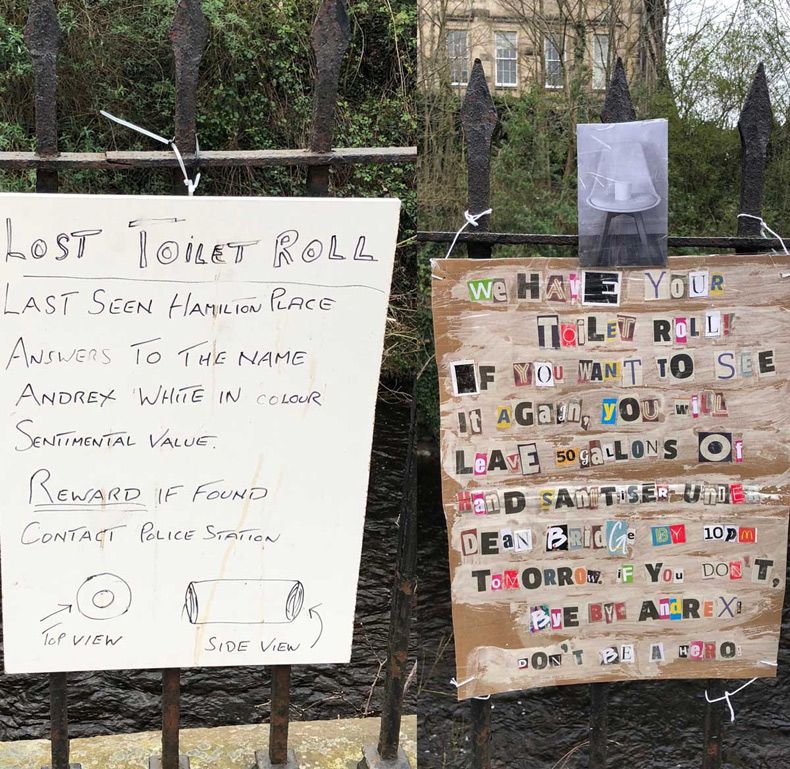 LOST TOILET ROLL
LAST SEEN HAMILTON PLACE
ANSWERS TO THE NAME
ANDREX WHITE IN COLOUR
SENTIMENTAL VALUE.
REWARD IF FOUND
CONTACT POLICE STATION
TOP VIEW
SIDE VIEW
We HAVE YOUR
TOILET ROLL!
IF YOU WANT TO SEE
it AGAin, YOU will
LEAVE 50 gALLONS Of
HAnD SANITISER UNDER
DEAN BRIDGe BY 10pm
TOMORROW. iF YOU DON'T,
BYE BYE ANDREX!
DON'T BE A HERO!